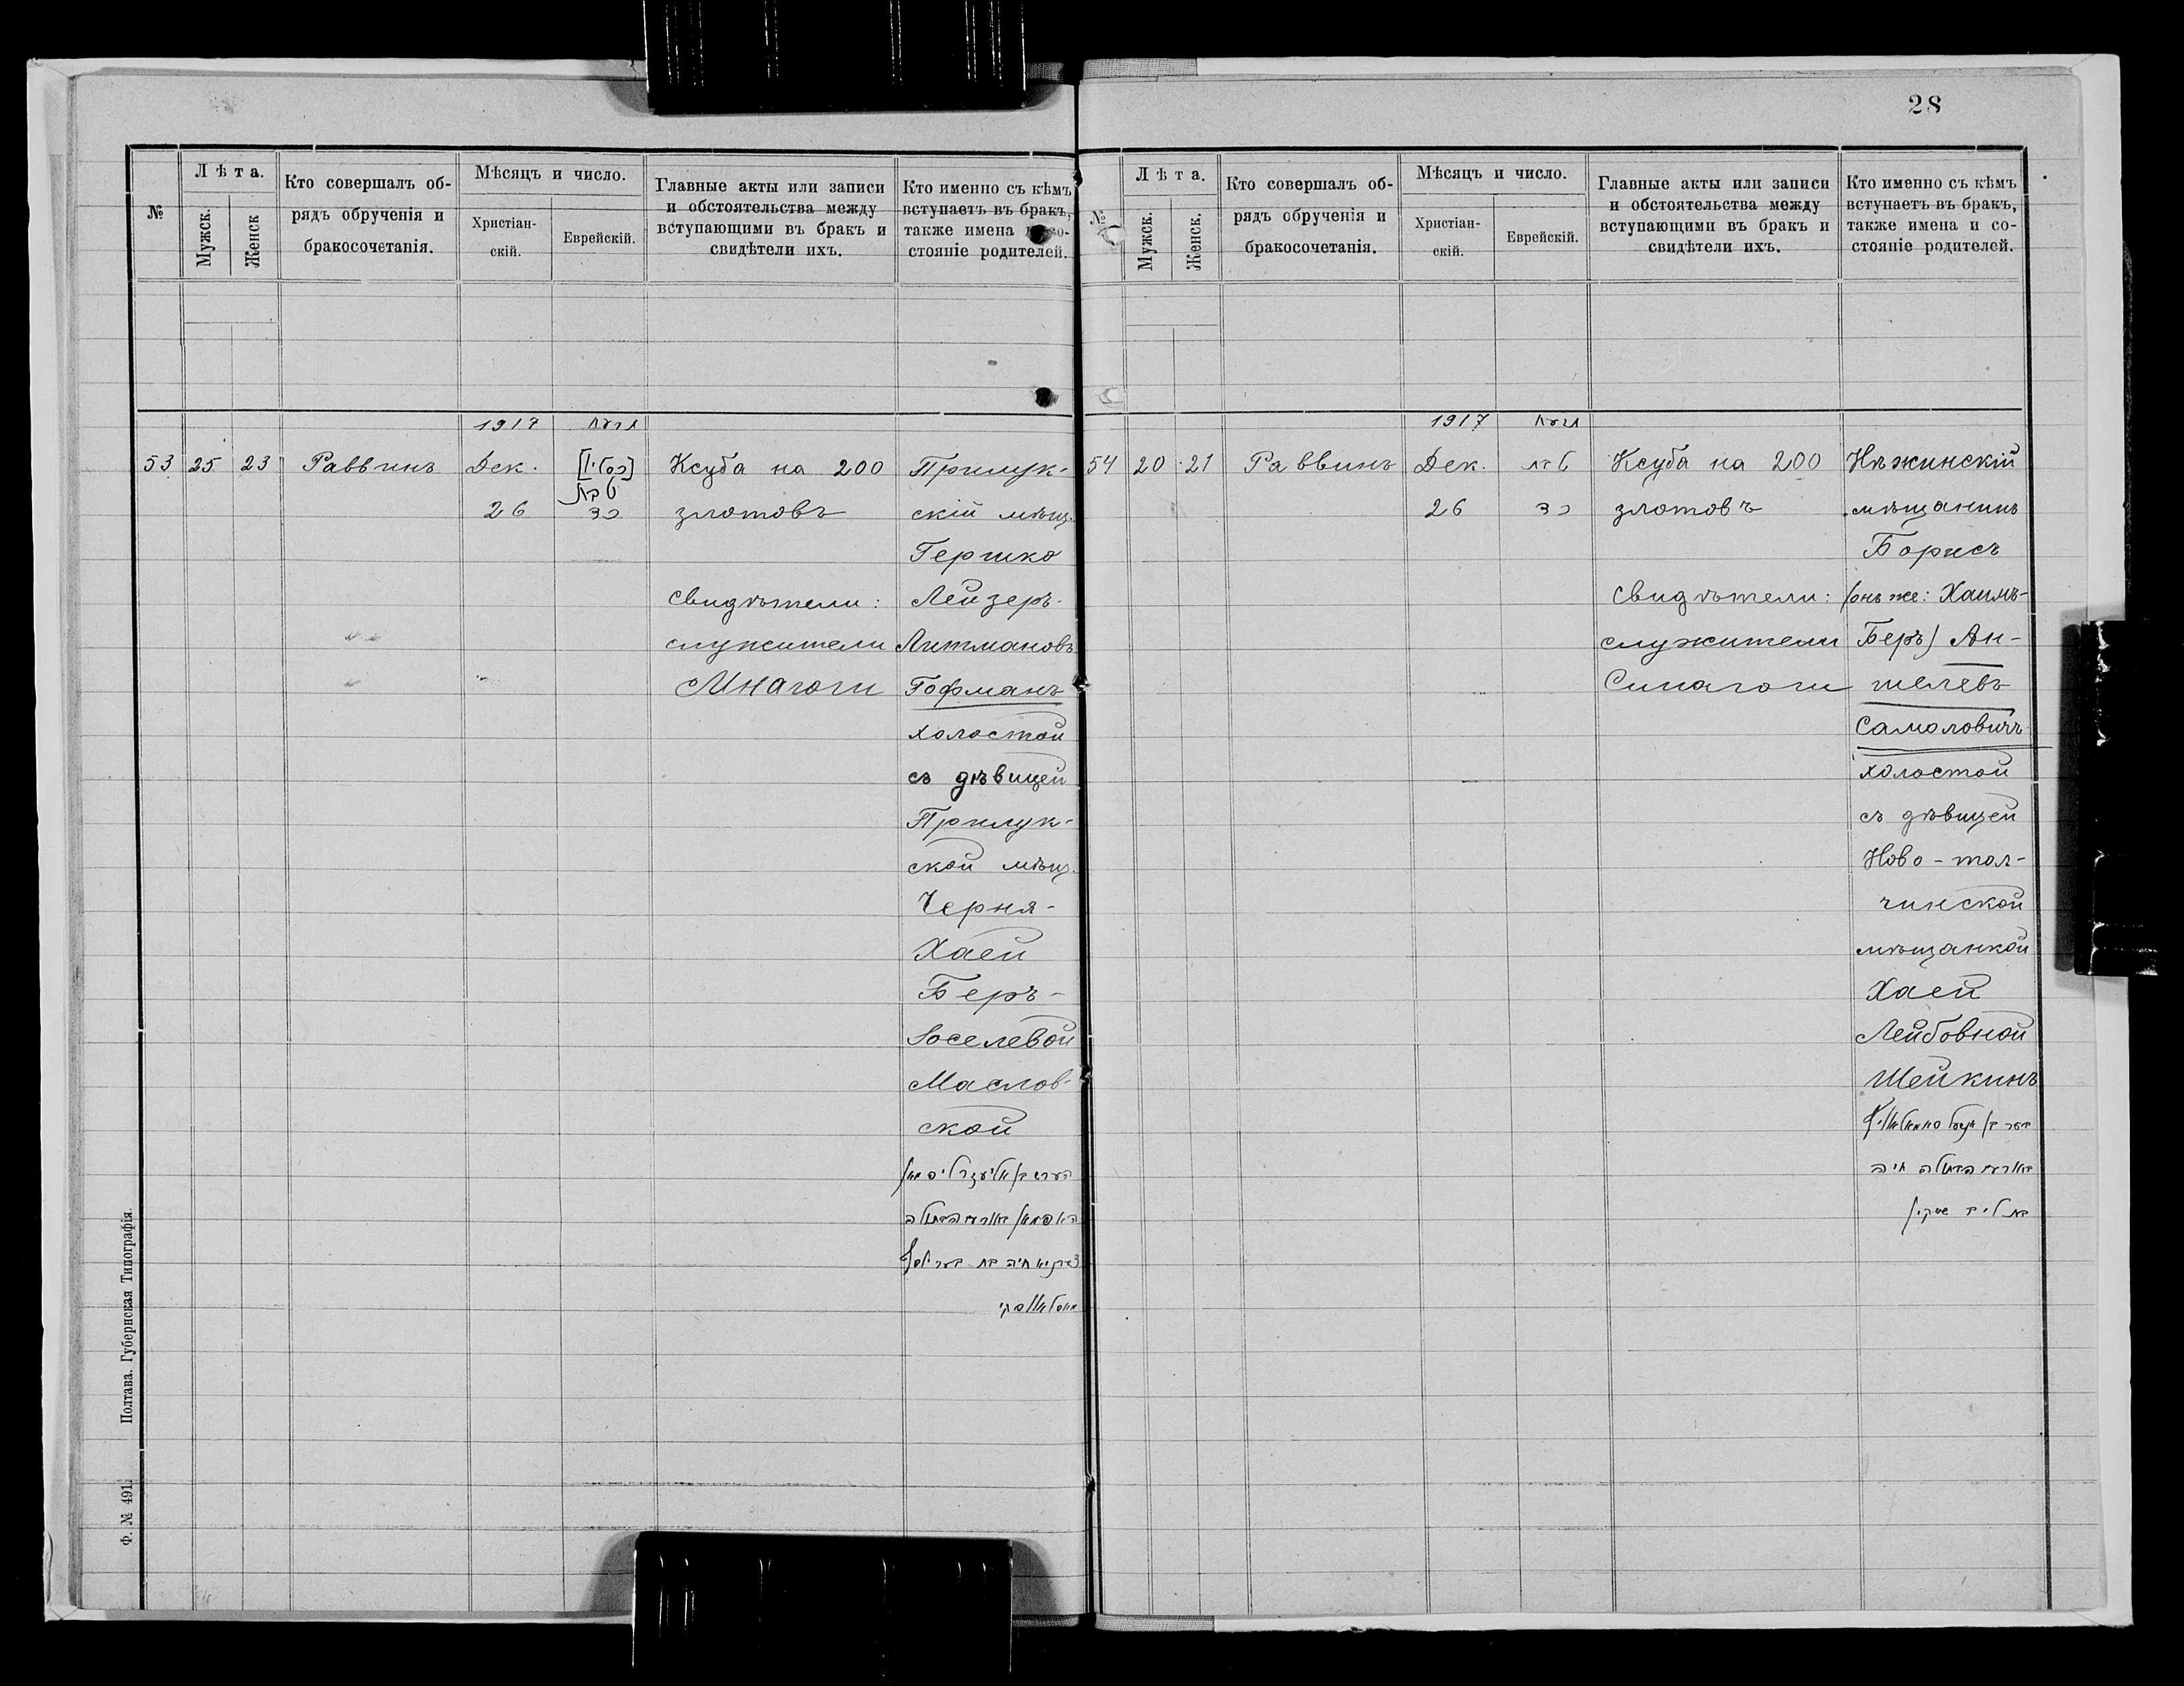 28
№
Лѣта.
Мужск.
Женск
Кто совершалъ об-
рядъ обрученія и
бракосочетанія.
Мѣсяцъ и число.
Христіан-
скій.
Еврейскій.
Главные акты или записи
и обстоятельства между
вступающими въ бракъ и
свидѣтели ихъ.
Кто именно съ кѣмъ
вступаетъ въ бракъ,
также имена и со-
стояніе родителей.
1917
53 25 23 Раввинъ Дек. Ксуба на 200 Прилук-
26 злотовъ скій мѣщ.
Гершко
свидѣтели: Лейзеръ-
служители Литмановъ
Синагоги Гофманъ
холостой
съ дѣвицей
Прилук-
ской мѣщ.
Черня-
Хаей
Беръ-
Іоселевой
Маслов-
ской
Ф. № 491. Полтава. Губернская Типографія.
№
Лѣта.
Мужск.
Женск.
Кто совершалъ об-
рядъ обрученія и
бракосочетанія.
Мѣсяцъ и число.
Христіан-
скій.
Еврейскій.
Главные акты или записи
и обстоятельства между
вступающими въ бракъ и
свидѣтели ихъ.
Кто именно съ кѣмъ
вступаетъ въ бракъ,
также имена и со-
стояніе родителей.
1917
54 20 21 Раввинъ Дек. Ксуба на 200 Нѣжинскій
26 злотовъ мѣщанинъ
Борисъ
свидѣтели: (онъ же: Хаимъ-
служители Беръ) Ан-
Синагоги шелевъ
Самоловичъ
холостой
съ дѣвицей
Ново-тол-
чинской
мѣщанкой
Хаей
Лейбовной
Шейкинъ